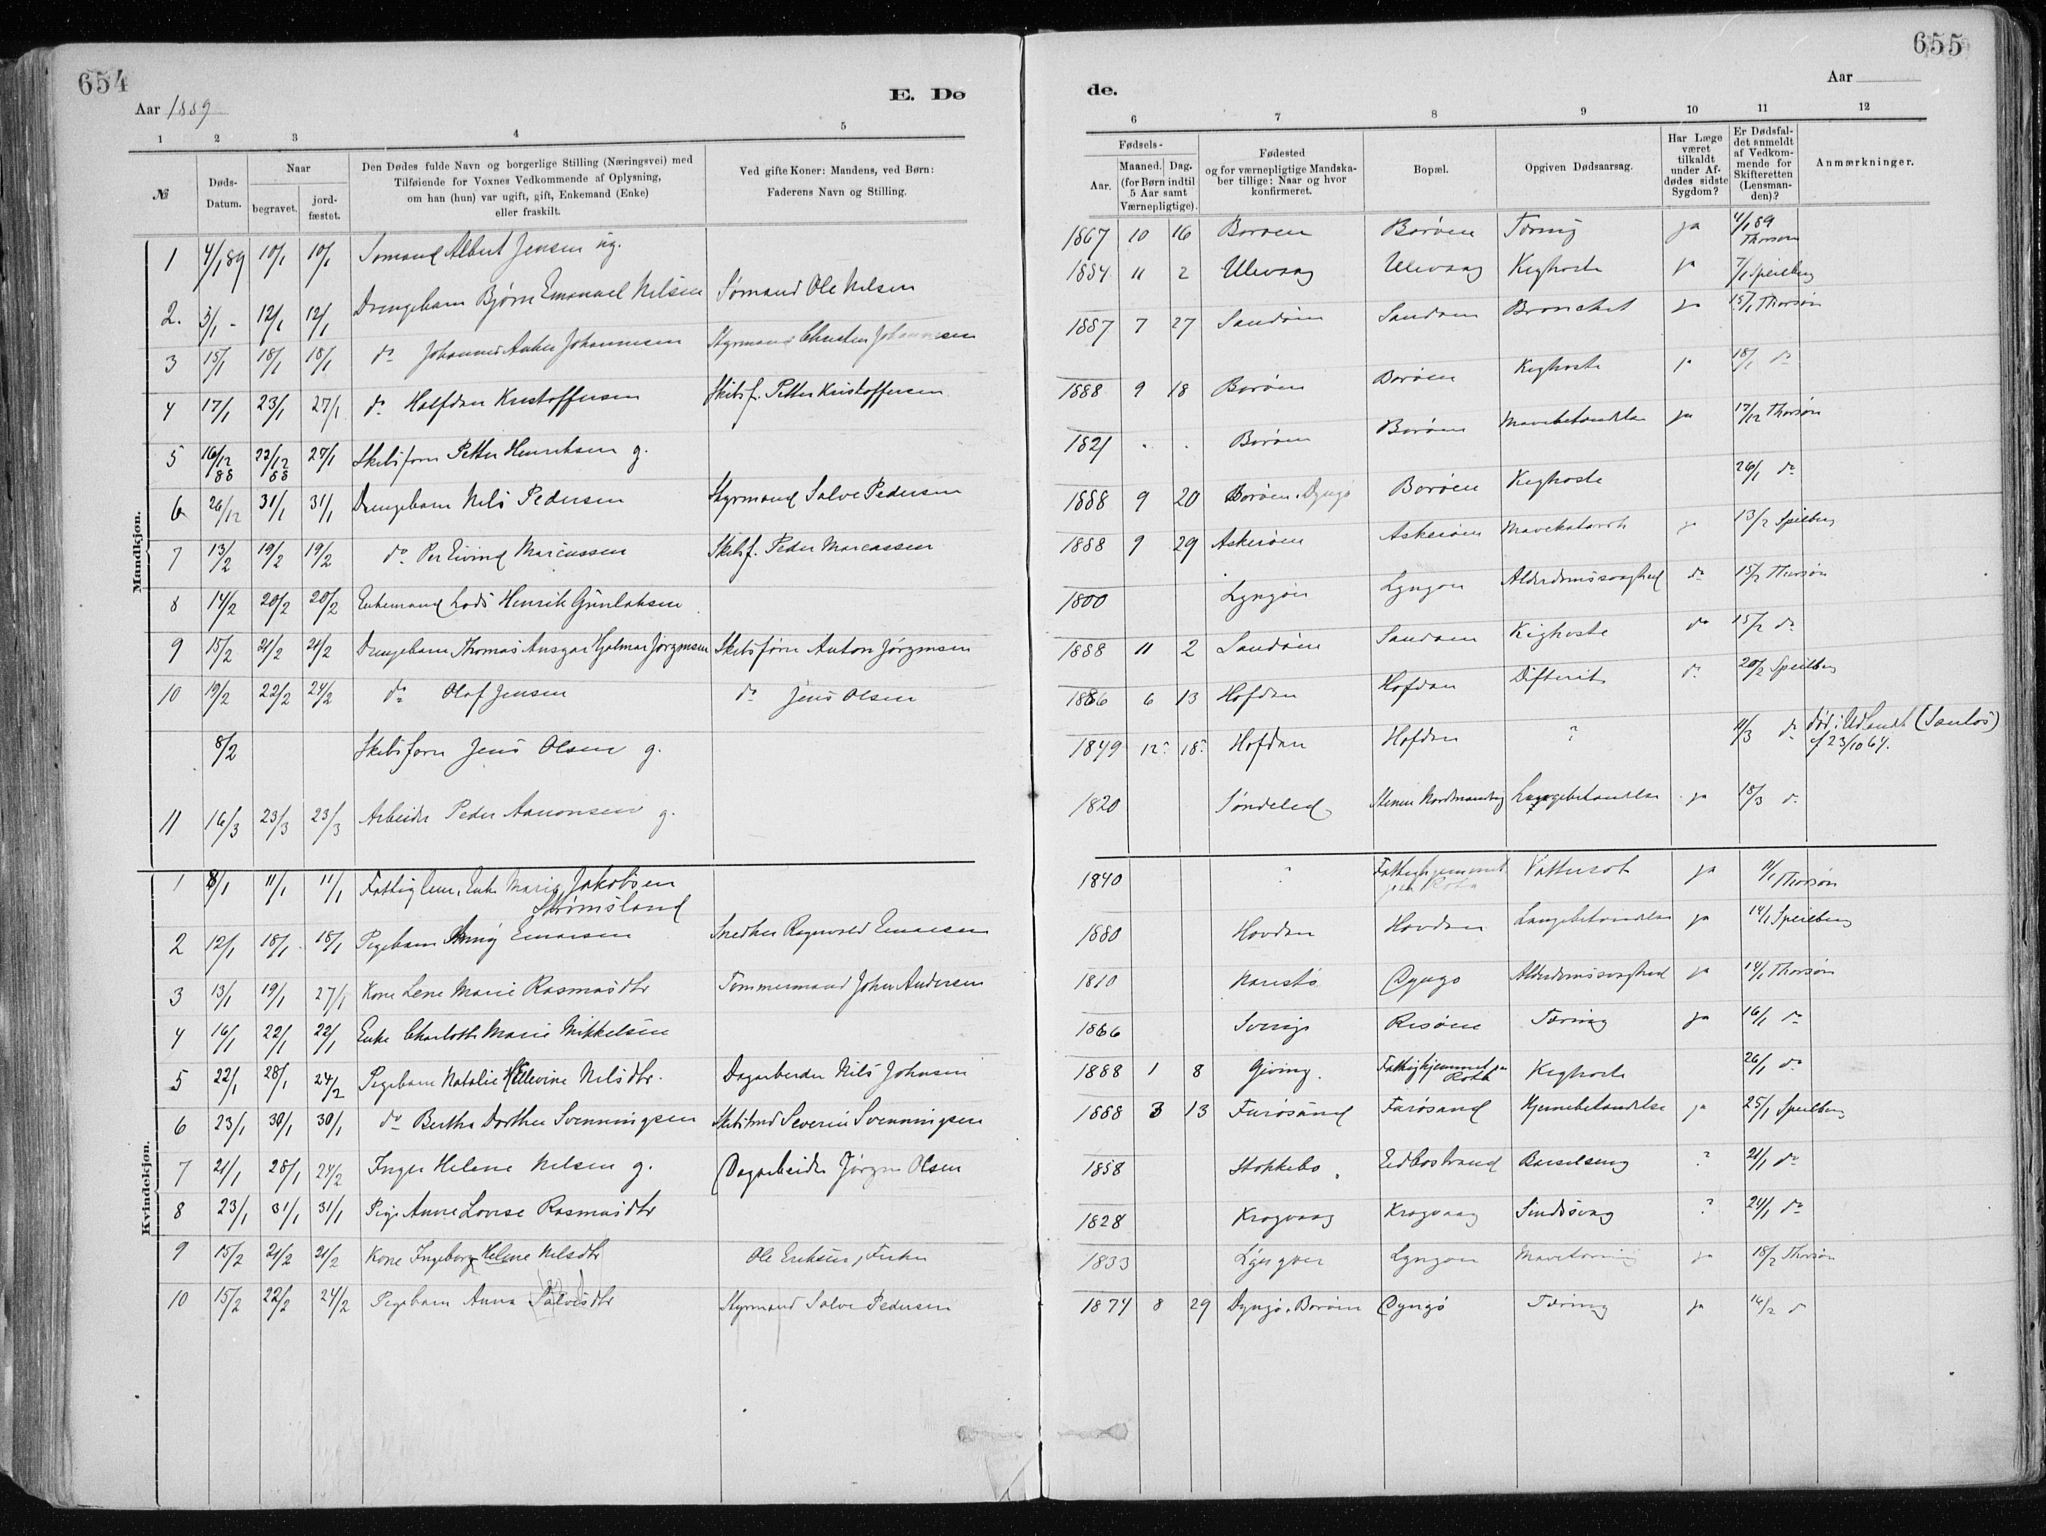 654
655
Aar 1889
E. Dø
de.
Aar
1 2 3 4 5 6 7 8 9 10 11 12
№
Døds-Datum.
Naar
begravet.
jord-fæstet.
Den Dødes fulde Navn og borgerlige Stilling (Næringsvei) med
Tilføiende for Voxnes Vedkommende af Oplysning,
om han (hun) var ugift, gift, Enkemand (Enke)
eller fraskilt.
Ved gifte Koner: Mandens, ved Børn:
Faderens Navn og Stilling.
Fødsels-
Aar.
Maaned. Dag.
(for Børn indtil
5 Aar samt
Værnepligtige).
Fødested
og for værnepligtige Mandska-
ber tillige: Naar og hvor
konfirmeret.
Bopæl.
Opgiven Dødsaarsag.
Har Læge
været
tilkaldt
under Af-
dødes sidste
Sygdom?
Er Dødsfal-
det anmeldt
af Vedkom-
mende for
Skifteretten
(Lensman-
den)?
Anmærkninger.
Mandkjøn.
1 4/1 89 10/1 10/1 Sømand Albert Jensen ug. 1867 10 16 Borøen Borøen Tæring ja 4/1 89 Thorsøn
2. 3/1 - 12/1 12/1 Drengebarn Bjørn Emanuel Nilsen Sømand Ole Nilsen 1884 11 2 Ulevaag Ulevaag Kighoste ja 7/1 Speilberg
3 15/1 18/1 18/1 do Johannes Anker Johannesen Styrmand Christen Johannesen 1887 7 27 Sandøen Sandøen Bronchit ja 15/1 Thorsøn
4 17/1 23/1 27/1 do Halfdan Kristoffersen Skibsf. Petter Kristoffersen 1888 9 18 Borøen Borøen Kighoste ja 18/1 do
5 16/12 88 22/12 88 27/1 Skibsfører Petter Henriksen g. 1821 - - Borøen Borøen Mavebetændelse ja 17/12 Thorsøn
6 26/12 31/1 31/1 Drengebarn Nils Pedersen Styrmand Salve Pedersen 1888 9 20 Borøen, Dyngø Borøen Kighoste 26/1 do
7 13/2 19/2 19/2 do Per Eivind Marcussen Skibsf. Peder Marcussen 1888 9 29 Askerøen Askerøen Mavekatarrh ja 13/2 Speilberg
8 14/2 20/2 20/2 Enkemand Lods Henrik Gunlaksen 1800 Lyngøer Lyngøer Alderdomssvaghed do 15/2 Thorsøn
9 15/2 21/2 21/2 Drengebarn Thomas Ansgar Hjalmar Jørgensen Skibsfører Anton Jørgensen 1888 11 2 Sandøen Sandøen Kighoste do 15/2 do
10 19/2 22/2 24/2 do Olaf Jensen do Jens Olsen 1886 6 13 Hofdan Hofdan Difterit do 20/2 Speilberg
8/2 Skibsfører Jens Olsen g. 1849 12 18 Hofdan Hofdan ? 11/3 do død i Udlandet (Santos)
cf 23/10 64.
11 16/3 23/3 23/3 Arbeider Peder Aanonsen g. 1820 Søndeled Lungebetændelse ja 18/3 do
Kvindekjøn.
1 8/1 11/1 11/1 Fattiglem, Enke Marie Jakobsen 1840 ? Fattighjemmet Vattersot ja 11/1 Thorsøn
Strømsland
2 12/1 18/1 18/1 Pigebarn Emarsen Snedker Ragnvald Emarsen 1880 Hovdan Hovdan Lungebetændelse ja 14/1 Speilberg
3 13/1 19/1 27/1 Kone Lene Marie Rasmusdtr Tømmermand John Andersen 1810 Narestø Dyngø Alderdomssvaghed ja 14/1 Thorsøn
4 16/1 22/1 22/1 Enke Charlotte Marie Mikkelsen 1866 Sverige Risøen Tæring ja 16/1 do
5 22/1 28/1 24/2 Pigebarn Natalie Ellevine Nilsdtr. Dagarbeider Nils Johnsen 1888 1 8 Gjeving. Fattighjemmet Kighoste 26/1 do
6 23/1 30/1 30/1 do Bertha Dorthea Svenningsen Skibstmd Severin Svenningsen 1888 3 13 Furøsund Furøsund Hjernebetændelse ja 25/1 Speilberg
7 21/1 28/1 24/2 Inger Helene Nilsen g. Dagarbeider Jørgen Olsen 1858 Stokkebo, Eidbostrand Barselseng ? 21/1 do
8 23/1 31/1 31/1 Pige Anne Lovise Rasmusdtr 1828 Krogvaag Krogvaag Sindssvag ? 24/1 do
9 15/2 21/2 21/2 Kone Ingeborg Helene Nilsdtr Ole Eriksen, Fisker 1833 Lyngøer Mavetæring ja 18/2 Thorsøn
10 15/2 22/2 24/2 Pigebarn Anna Salvesdtr Styrmand Salve Pedersen 1874 8 29 Dyngø, Borøen Dyngø Tæring ja 16/2 do